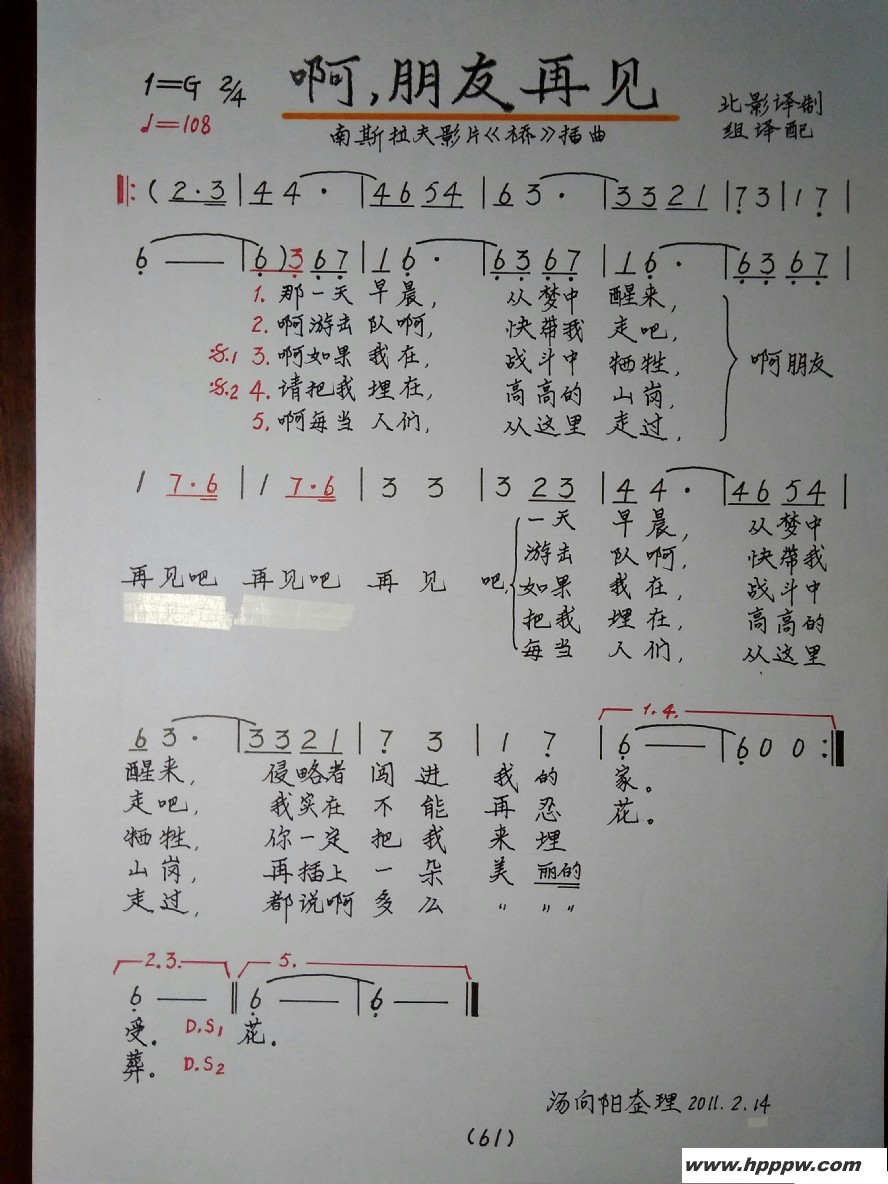 1=G 2/4 啊,朋友再见 北影译制
♩=108 南斯拉夫影片《桥》插曲 组译配
‖: ( 2·3 | 4 4 · | 46 54 | 6 3 · | 33 21 | 7 3 | 1 7 |
6 — | 6 ) 3 6 7 | 1 6 · | 63 67 | 1 6 · | 63 67 |
1. 那一天 早晨, 从梦中 醒来,
2. 啊游击 队啊, 快带我 走吧,
:S.1 3. 啊如果 我在, 战斗中 牺牲, 啊朋友
:S.2 4. 请把我 埋在, 高高的 山岗,
5. 啊每当 人们, 从这里 走过,
1 7·6 | 1 7·6 | 3 3 | 3 23 | 4 4 · | 46 54 |
一天 早晨, 从梦中
游击 队啊, 快带我
再见吧 再见吧 再 见 吧, 如果 我在, 战斗中
把我 埋在, 高高的
每当 人们, 从这里
1.4.
6 3 · | 33 21 | 7 3 | 1 7 | 6 — | 6 0 0 :‖
醒来, 侵略者 闯 进 我 的 家。
走吧, 我实在 不 能 再 忍 花。
牺牲, 你一定 把 我 来 埋
山岗, 再插上 一 朵 美 丽的
走过, 都说啊 多 么 〃 〃 〃
2.3. 5.
6 — ‖ 6 — | 6 — ‖
受。 D.S1 花。
葬。 D.S2
汤向阳奎理 2011.2.14
(61)
www.hpppw.com